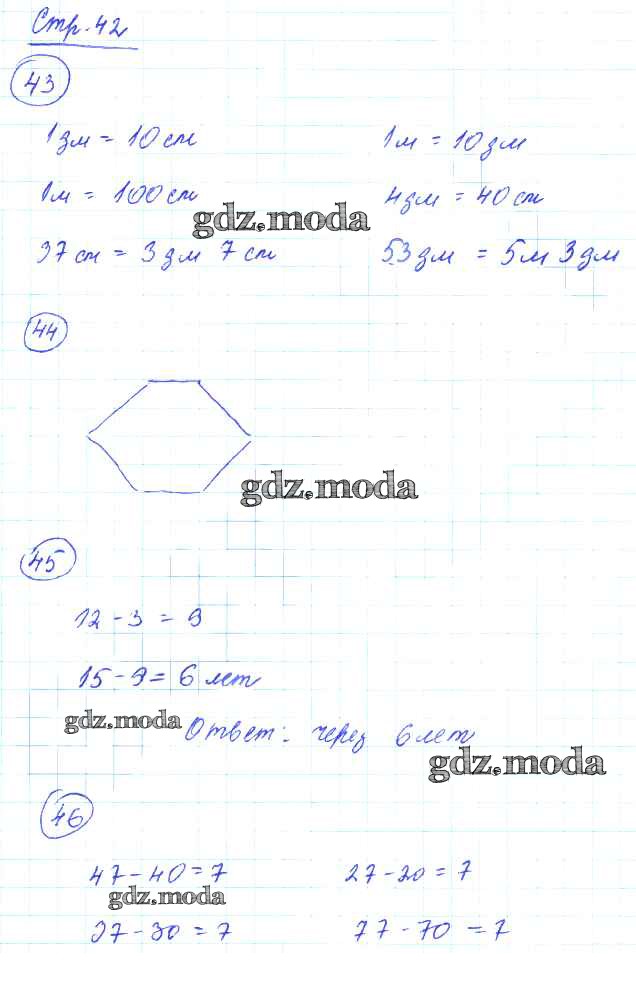 Стр. 42
43
1дм = 10 см 1м = 10 дм
1м = 100 см 4дм = 40 см
gdz.moda
37 см = 3 дм 7 см 53 дм = 5м 3 дм
44
gdz.moda
45
12 - 3 = 9
15 - 9 = 6 лет
gdz.moda
Ответ: через 6 лет
gdz.moda
46
47 - 40 = 7 27 - 20 = 7
gdz.moda
37 - 30 = 7 77 - 70 = 7